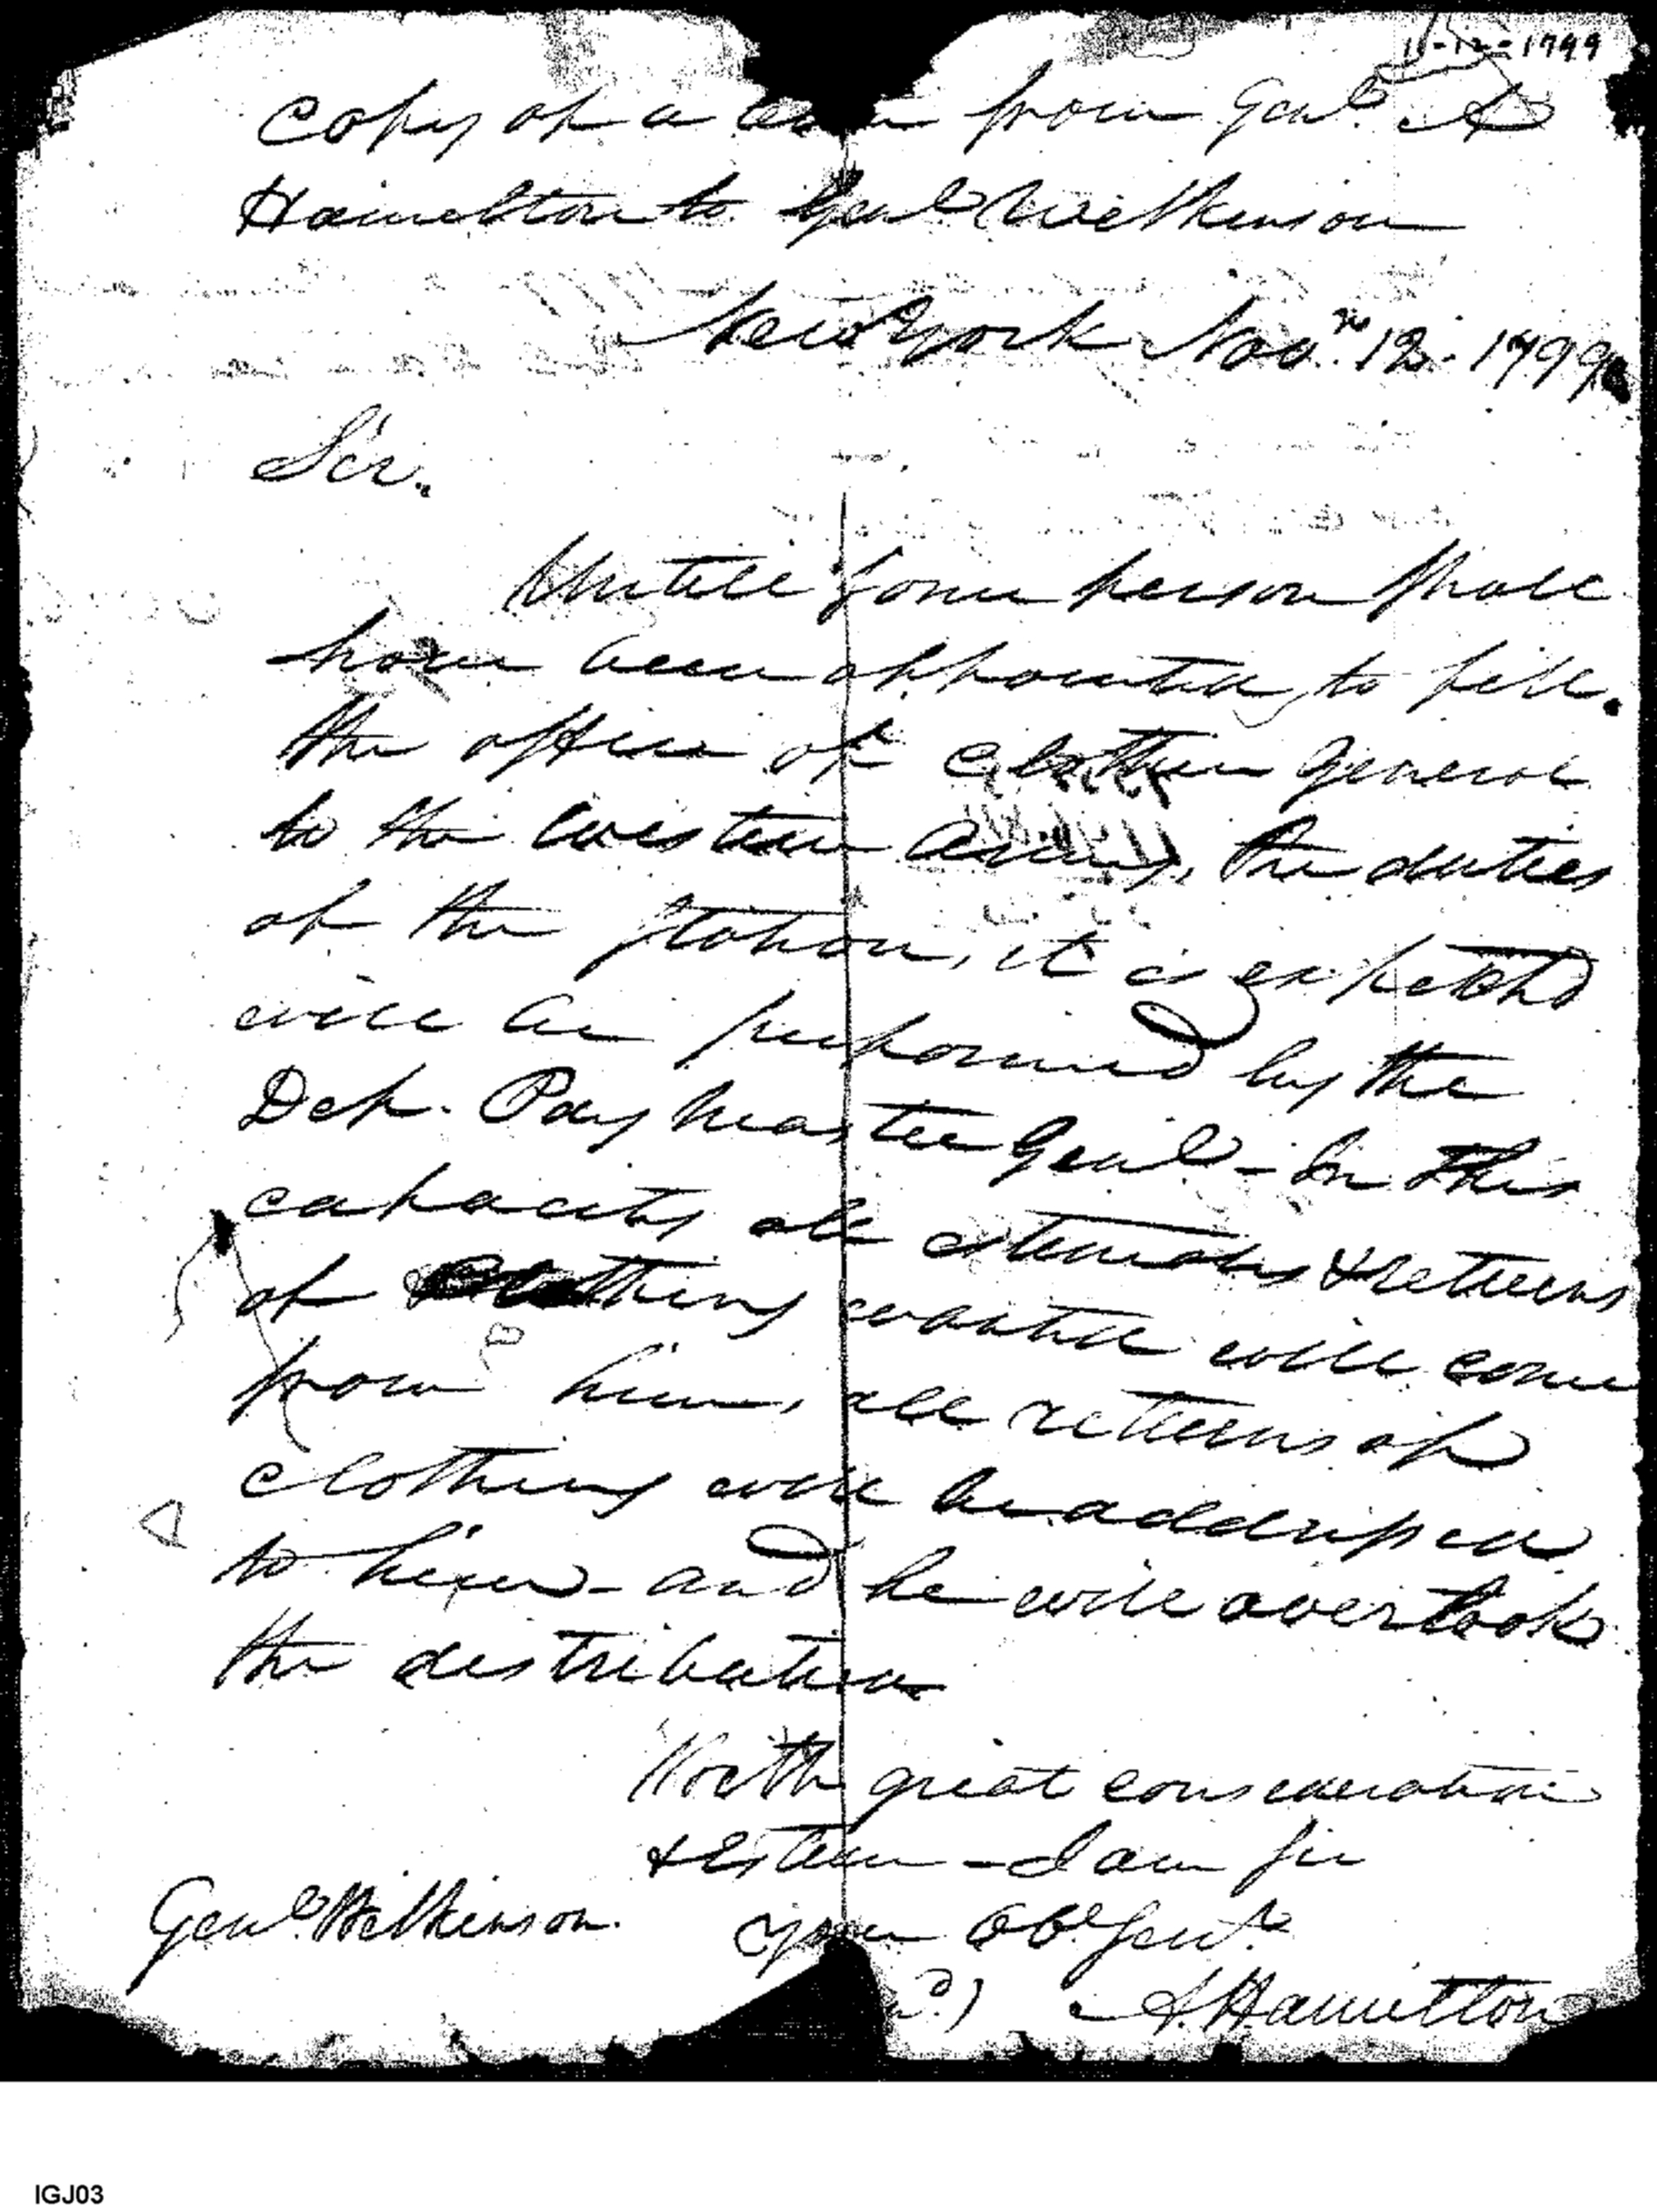 11-12-1799
Copy of a from Genl. A
Hamilton to Genl Wilkinson
New York Nov.r 12. 1799
Sir.
Untill some person shall
have been appointed to fill.
the office of clothier General
to the Western Army, the duties
of the station, it is expected
will be performed by the
Dep. Pay Master Genl - In this
capacity all estimates & returns
of Clothing wanted will come
from him, all returns of
clothing will be addressed
to him - and he will overlook
the distribution
With great consideration
& Esteem - I am sir
your Obt. Servt.
Genl. Wilkinson.
d.) A. Hamilton
IGJ03